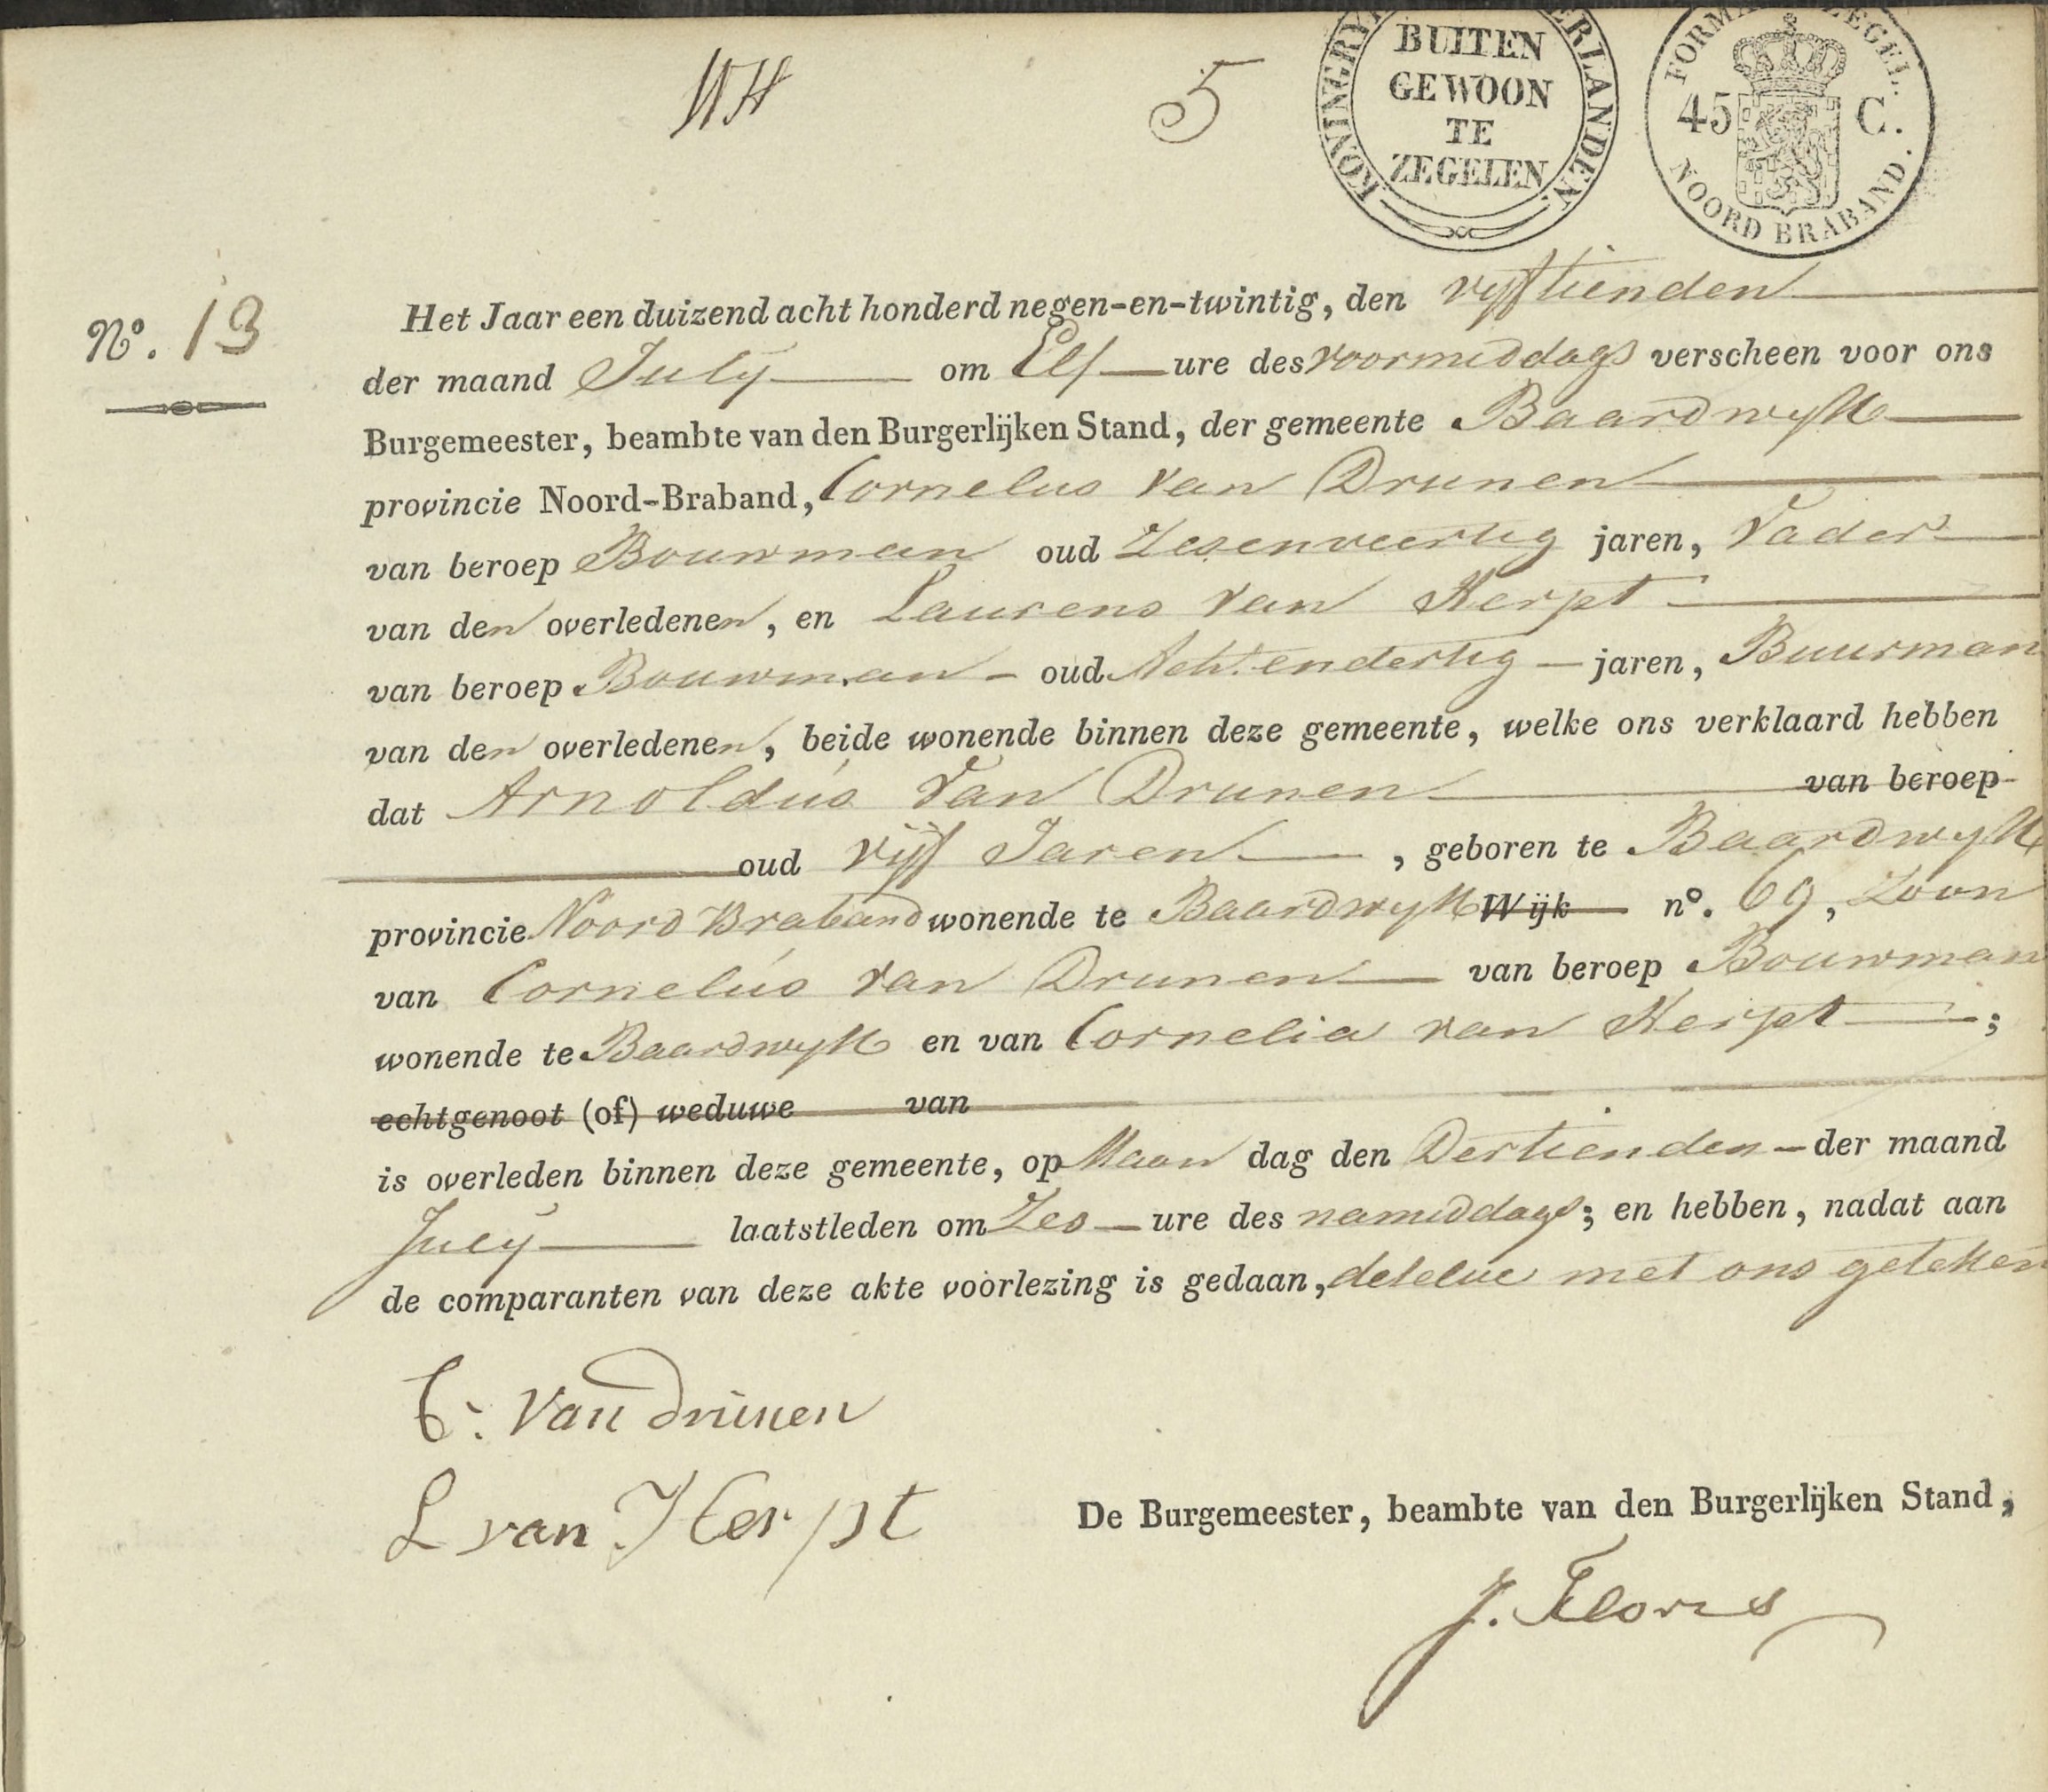 WH 5
KONINGRYK NEDERLANDEN.
BUITEN
GEWOON
TE
ZEGELEN
FORMAAT ZEGEL.
45 C.
NOORD BRABAND.
No. 13
Het Jaar een duizend acht honderd negen-en-twintig, den vyftienden
der maand July om Elf ure des voormiddags verscheen voor ons
Burgemeester, beambte van den Burgerlijken Stand, der gemeente Baardwyk
provincie Noord-Braband, Cornelus van Drunen
van beroep Bouwman oud Zesenveertig jaren, Vader
van den overledenen, en Laurens van Herpt
van beroep Bouwman - oud Achtendertig - jaren, Buurman
van den overledenen, beide wonende binnen deze gemeente, welke ons verklaard hebben
dat Arnoldus Van Drunen van beroep
oud vijf Jaren, geboren te Baardwyk
provincie Noord Braband wonende te Baardwyk Wijk no. 69, Zoon
van Cornelus van Drunen van beroep Bouwman
wonende te Baardwyk en van Cornelia van Herpt;
echtgenoot (of) weduwe van
is overleden binnen deze gemeente, op Maan dag den Dertienden - der maand
July laatstleden om Zes - ure des namiddags; en hebben, nadat aan
de comparanten van deze akte voorlezing is gedaan, deselve met ons geteken
C. Van drunen
L van Herpt
De Burgemeester, beambte van den Burgerlijken Stand,
J. Floris